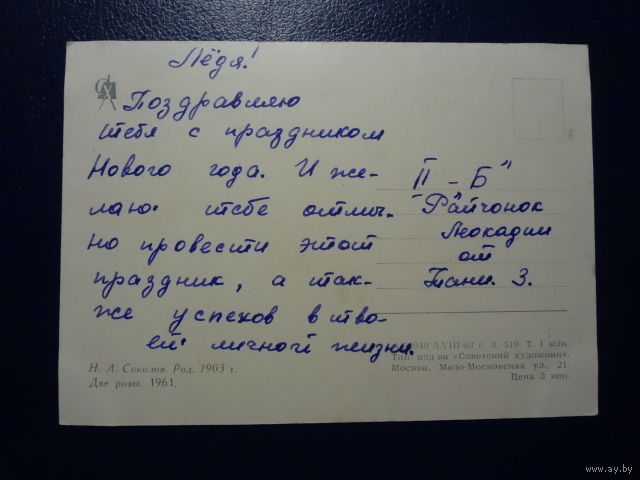 Лёдя!
Поздравляю
тебя с праздником
Нового года. И же-
лаю тебе отлич-
но провести этот
праздник, а так-
же успехов в тво-
ей личной жизни.
II - Б"
Райчонок
Леокадии
от
Тани. З.
Н. А. Соколов. Род. 1903 г.
Две розы. 1961.
5.VIII-63 г. З. 519. Т. 1 млн.
Тип. изд-ва «Советский художник».
Москва, Мало-Московская ул., 21.
Цена 3 коп.
www.ay.by